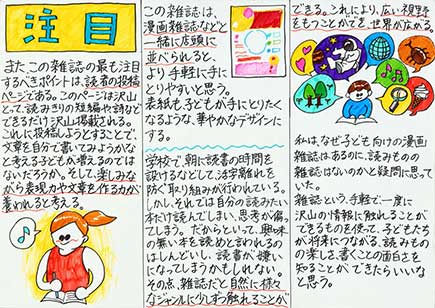 注目
また この雑誌の最も注目
するべきポイントは、読者の投稿
ページである。このページは沢山
とって、読みきりの短編や詩など
できるだけ沢山掲載される。
これに投稿しようとすることで、
文章を自分で書いてみようかな
と考える子どもか増えるのでは
ないだろうか。そして、楽しみな
がら表現力や文章を作る力が
養われると考える。
この雑誌は、
漫画雑誌などと
一緒に店頭に
並べられると、
より手軽に手に
とりやすいと思う。
表紙も、子どもが手にとりたく
なるような、華やかなデザインに
する。
学校で、朝に読書の時間を
設けるなどして、活字離れを
防ぐ取り組みが行われている。
しかし、それでは自分の読みたい
本だけ読んでしまい、思考が偏っ
てしまう。だからといって、興味
の無い本を読めと言われるの
はしんどいし、読書が嫌い
になってしまうかもしれない。
その点、雑誌だと自然に様々
なジャンルに少しずつ触れることが
できる。これにより、広い視野
をもつことができ、世界が広がる。
私は、なぜ子ども向けの漫画
雑誌はあるのに、読みもの
雑誌はないのかと疑問に思って
いた。
雑誌という、手軽で一度に
沢山の情報に触れることが
できるものを使って、子どもたち
が将来につながる、読みもの
の楽しさ、書くことの面白さを
知ることができたらいいな
と思う。